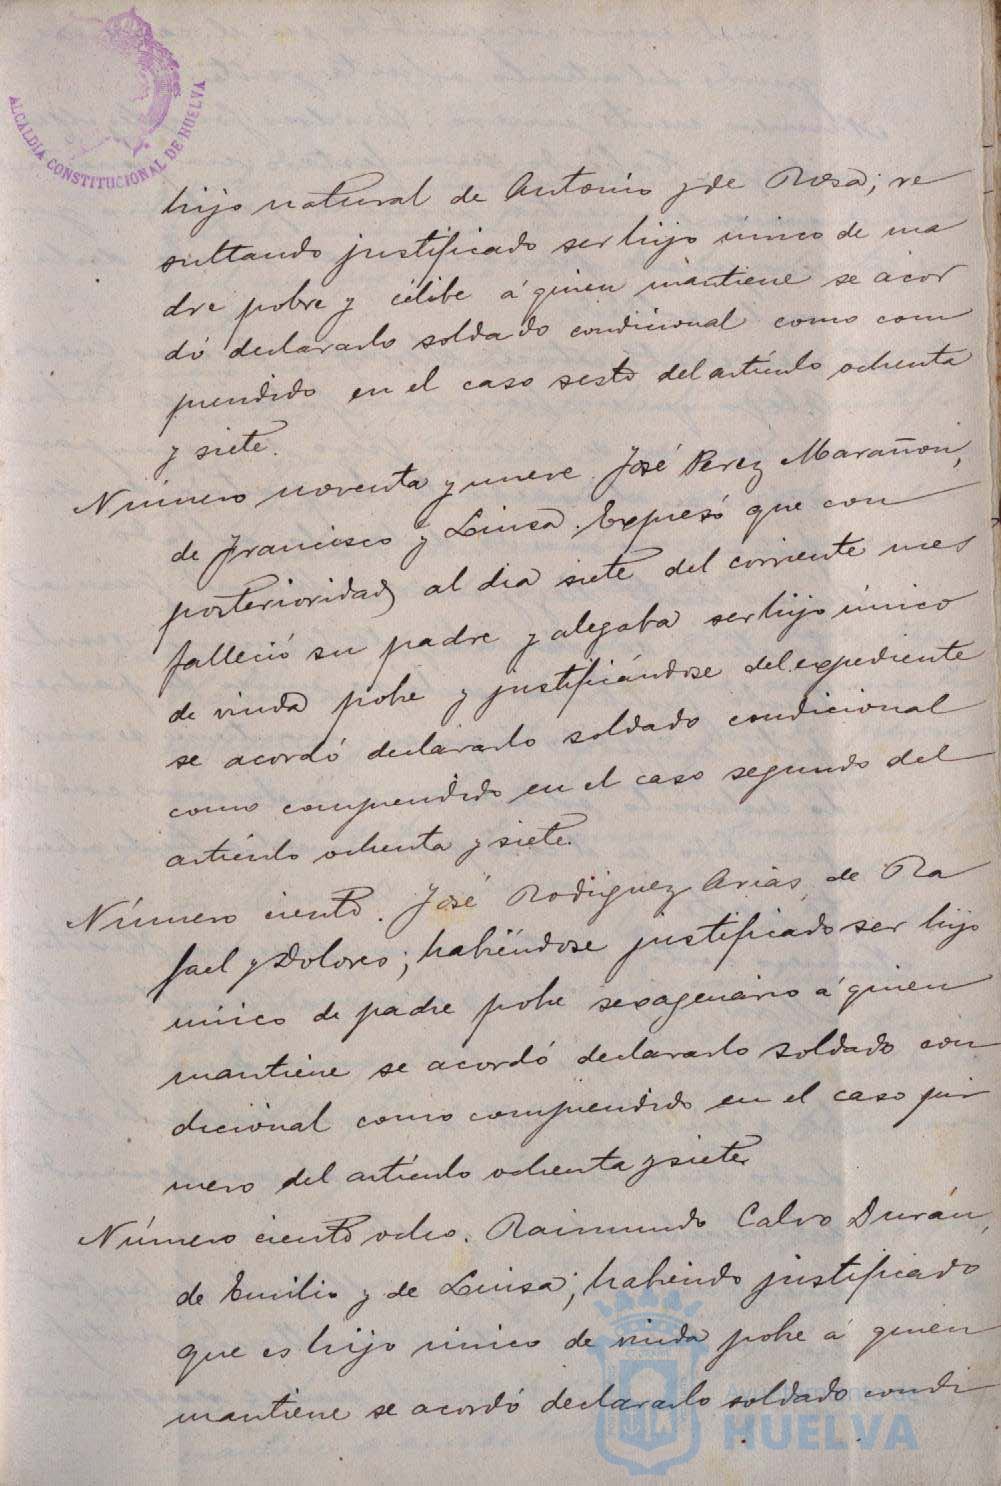 ALCALDÍA CONSTITUCIONAL DE HUELVA
hijo natural de Antonio y de Rosa; re
sultando justificado ser hijo único de ma
dre pobre y célibe á quien mantiene se acor
dó declararlo soldado condicional como com
prendido en el caso sesto del artículo ochenta
y siete.
Número noventa y nueve. José Perez Marañon,
de Francisco y Luisa. Expresó que con
posterioridad al dia siete del corriente mes
falleció su padre y alegaba ser hijo único
de viuda pobre y justificándose del expediente
se acordó declararlo soldado condicional
como comprendido en el caso segundo del
artículo ochenta y siete.
Número ciento. José Rodriguez Arias, de Ra
fael y Dolores; habiéndose justificado ser hijo
unico de padre pobre sexagenario á quien
mantiene se acordó declararlo soldado con
dicional como comprendido en el caso pri
mero del artículo ochenta y siete
Número ciento ocho. Raimundo Calvo Durán,
de Emilio y de Luisa; habiendo justificado
que es hijo unico de viuda pobre á quien
mantiene se acordó declararlo soldado condi
HUELVA